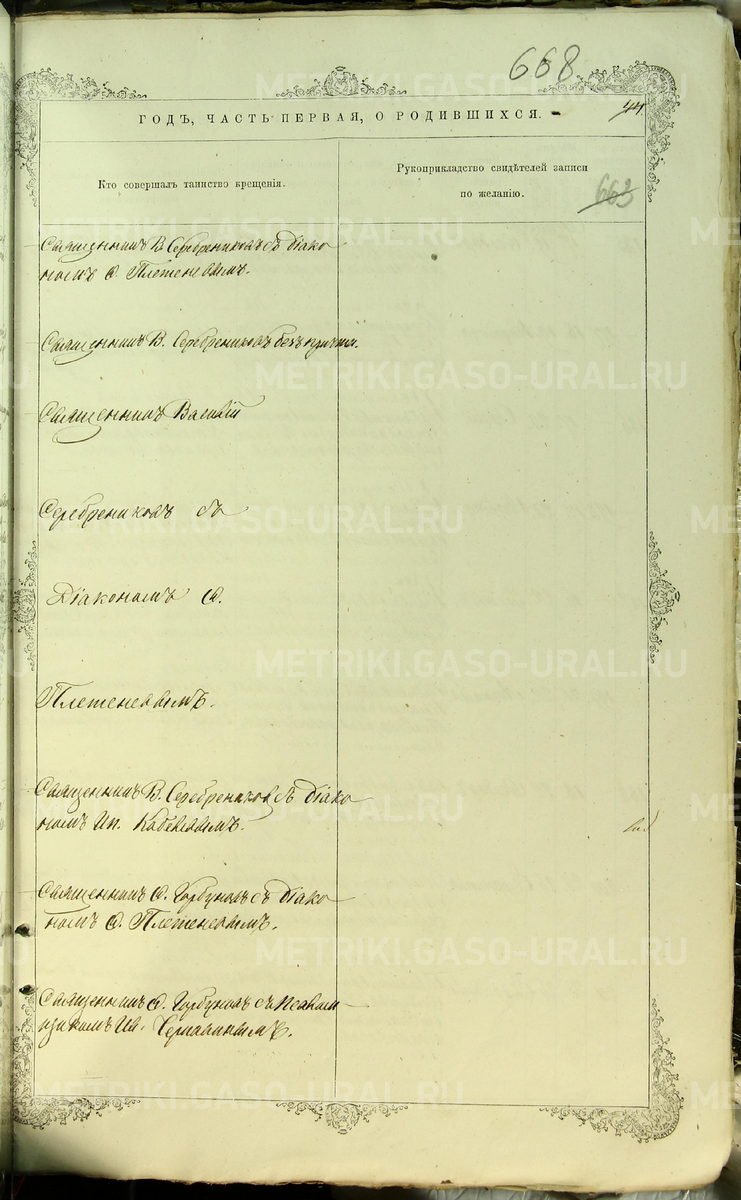 668
44
ГОДЪ, ЧАСТЬ ПЕРВАЯ, О РОДИВШИХСЯ.
Кто совершалъ таинство крещенія.
Рукоприкладство свидѣтелей записи
по желанію.
663
Священникъ В. Серебрениковъ съ Діако
номъ Ѳ. Плетеневымъ.
Священникъ В. Серебрениковъ безъ причта.
Священникъ Василій
Серебрениковъ съ
Діакономъ Ѳ.
Плетеневымъ.
Священникъ В. Серебрениковъ съ Діако
номъ Ип.
Священникъ Ѳ. Горбуновъ съ Діако
номъ Ѳ. Плетеневымъ.
Священникъ Ѳ. Горбуновъ съ Псалом
щикомъ Ив.
METRIKI.GASO-URAL.RU